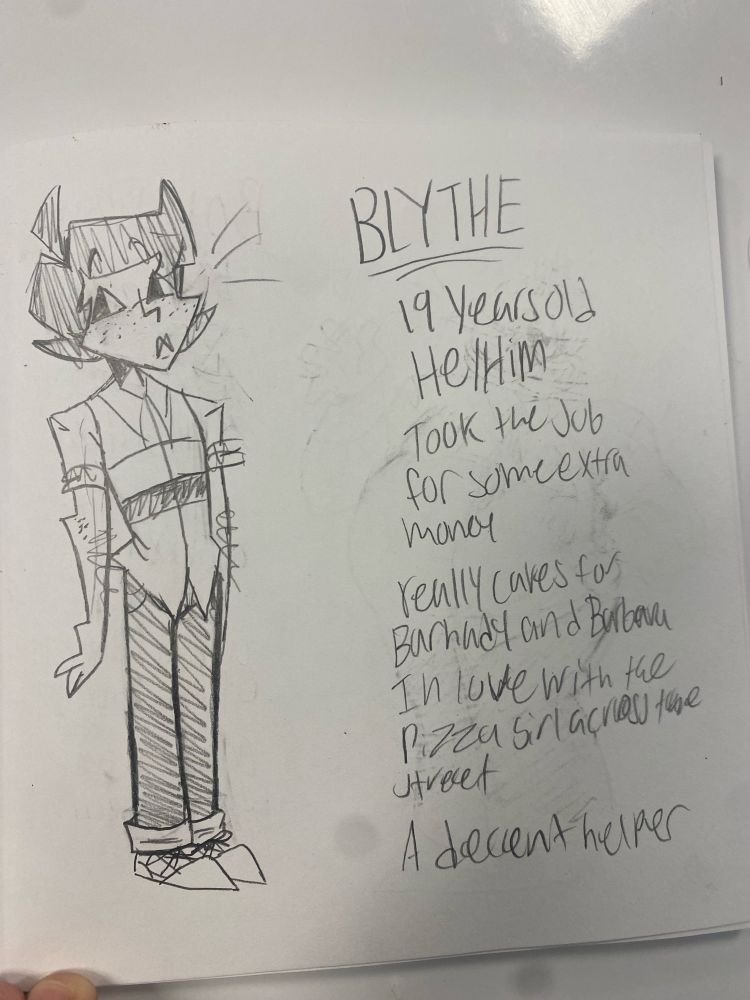 BLYTHE
19 Years old
He/Him
Took the Job
for some extra
money
really cares for
Barnady and Barbara
In love with the
Pizza Girl across the
street
A decent helper